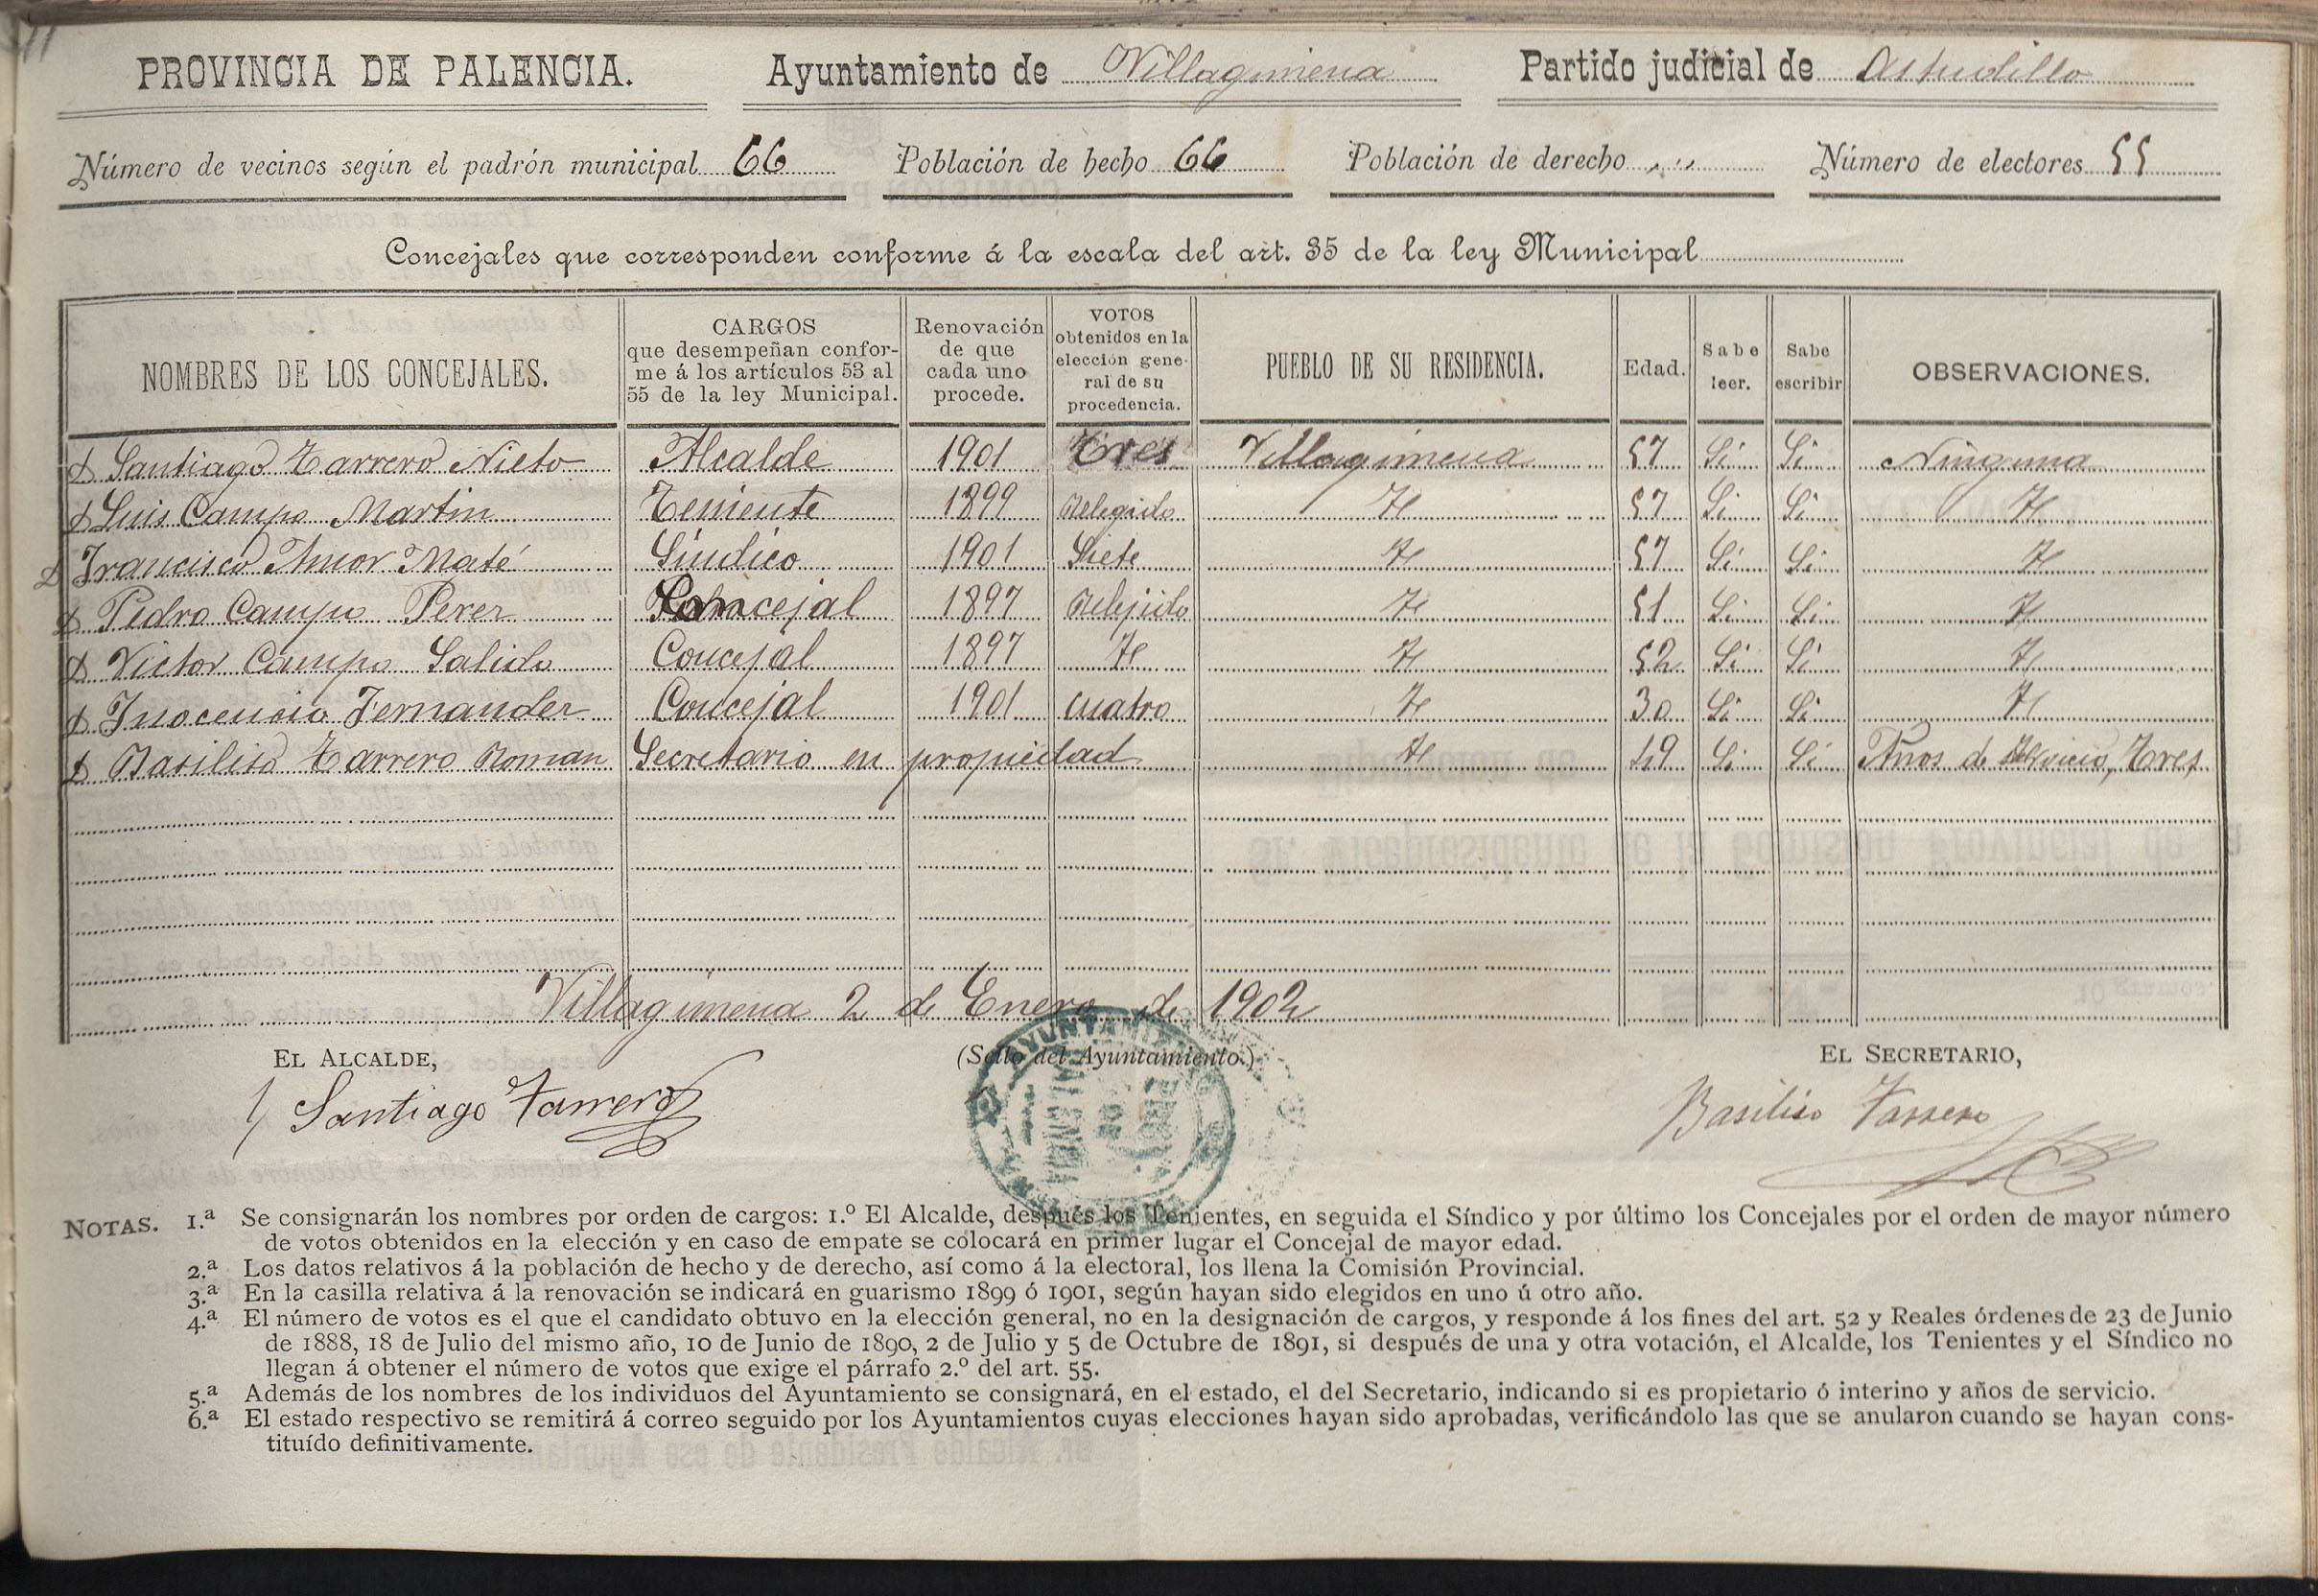 PROVINCIA DE PALENCIA. Ayuntamiento de Villagimena Partido judicial de Astudillo
Número de vecinos según el padrón municipal 66 Población de hecho 66 Población de derecho ,, ,, Número de electores 55
Concejales que corresponden conforme á la escala del art. 35 de la ley Municipal
NOMBRES DE LOS CONCEJALES.
CARGOS
que desempeñan confor-
me á los artículos 53 al
55 de la ley Municipal.
Renovación
de que
cada uno
procede.
VOTOS
obtenidos en la
elección gene-
ral de su
procedencia.
PUEBLO DE SU RESIDENCIA.
Edad.
Sabe
leer.
Sabe
escribir
OBSERVACIONES.
D Santiago Tarrero Nieto Alcalde 1901 Tres Villagimena 57 Si Si Ninguna
D Luis Campo Martin Teniente 1899 Relegido Id 57 Si Si Id
D Francisco Amor Maté Síndico 1901 Siete Id 57 Si Si Id
D Pedro Campo Perez Concejal 1897 Relejido Id 51 Si Si Id
D Victor Campo Salido Concejal 1897 Id Id 52 Si Si Id
D Inocencio Fernandez Concejal 1901 cuatro Id 30 Si Si Id
D Basiliso Tarrero Roman Secretario en propiedad Id 49 Si Si Años de servicio, Tres
Villagimena 2 de Enero de 1902
EL ALCALDE, (Sello del Ayuntamiento.) EL SECRETARIO,
Santiago Tarrero Basiliso Tarrero
NOTAS. 1.ª Se consignarán los nombres por orden de cargos: 1.º El Alcalde, después los Tenientes, en seguida el Síndico y por último los Concejales por el orden de mayor número
de votos obtenidos en la elección y en caso de empate se colocará en primer lugar el Concejal de mayor edad.
2.ª Los datos relativos á la población de hecho y de derecho, así como á la electoral, los llena la Comisión Provincial.
3.ª En la casilla relativa á la renovación se indicará en guarismo 1899 ó 1901, según hayan sido elegidos en uno ú otro año.
4.ª El número de votos es el que el candidato obtuvo en la elección general, no en la designación de cargos, y responde á los fines del art. 52 y Reales órdenes de 23 de Junio
de 1888, 18 de Julio del mismo año, 10 de Junio de 1890, 2 de Julio y 5 de Octubre de 1891, si después de una y otra votación, el Alcalde, los Tenientes y el Síndico no
llegan á obtener el número de votos que exige el párrafo 2.º del art. 55.
5.ª Además de los nombres de los individuos del Ayuntamiento se consignará, en el estado, el del Secretario, indicando si es propietario ó interino y años de servicio.
6.ª El estado respectivo se remitirá á correo seguido por los Ayuntamientos cuyas elecciones hayan sido aprobadas, verificándolo las que se anularon cuando se hayan cons-
tituído definitivamente.